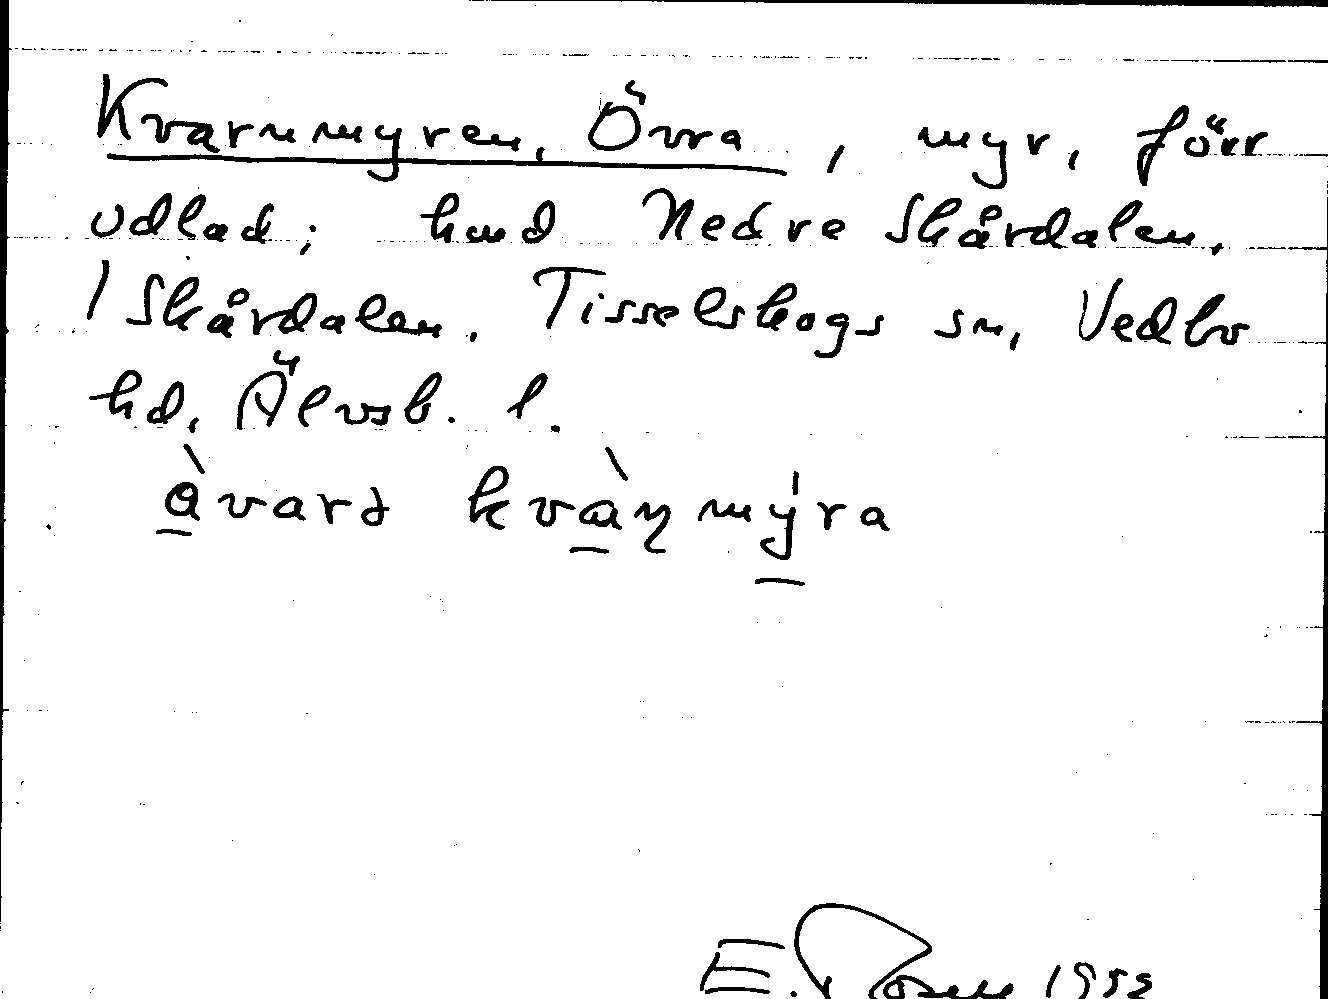 Kvarnmyren, Övra, myr, förr
odlad; hmd Nedre Skårdalen.
I Skårdalen. Tisselskogs sn, Vedbo
hd, Älvsb. l.
kvàɳmýra
E. Rosell 1952